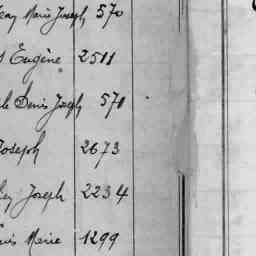 Marie Joseph 570
Eugène 2511
Denis Joseph 571
Joseph 2673
Joseph 2234
Marie 1299